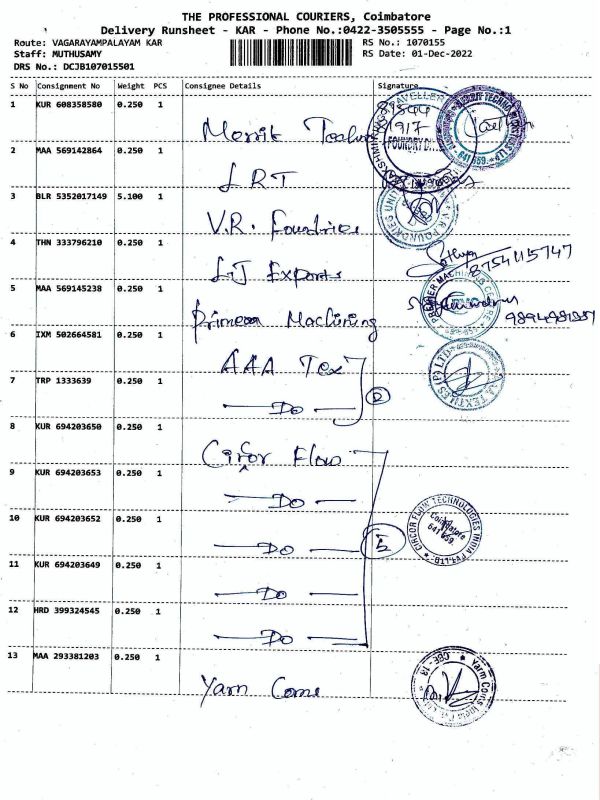 THE PROFESSIONAL COURIERS, Coimbatore
Delivery Runsheet - KAR - Phone No.:0422-3505555 - Page No.:1
Route: VAGARAYAMPALAYAM KAR RS No.: 1070155
Staff: MUTHUSAMY RS Date: 01-Dec-2022
DRS No.: DCJB107015501
S No Consignment No Weight PCS Consignee Details Signature
1 KUR 608358580 0.250 1
Merrit Techno
2 MAA 569142864 0.250 1
LRT
3 BLR 5352017149 5.100 1
V.R. Foundries
4 THN 333796210 0.250 1
8754115747
LJ Exports
5 MAA 569145238 0.250 1
Machining
6 IXM 502664581 0.250 1
AAA Tex
7 TRP 1333639 0.250 1
Do
8 KUR 694203650 0.250 1
Circor Flow
9 KUR 694203653 0.250 1
Do
10 KUR 694203652 0.250 1
Do
5
CIRCOR FLOW TECHNOLOGIES INDIA PVT.LTD.
Coimbatore
641 659.
11 KUR 694203649 0.250 1
Do
12 HRD 399324545 0.250 1
Do
13 MAA 293381203 0.250 1
Yarn Cons